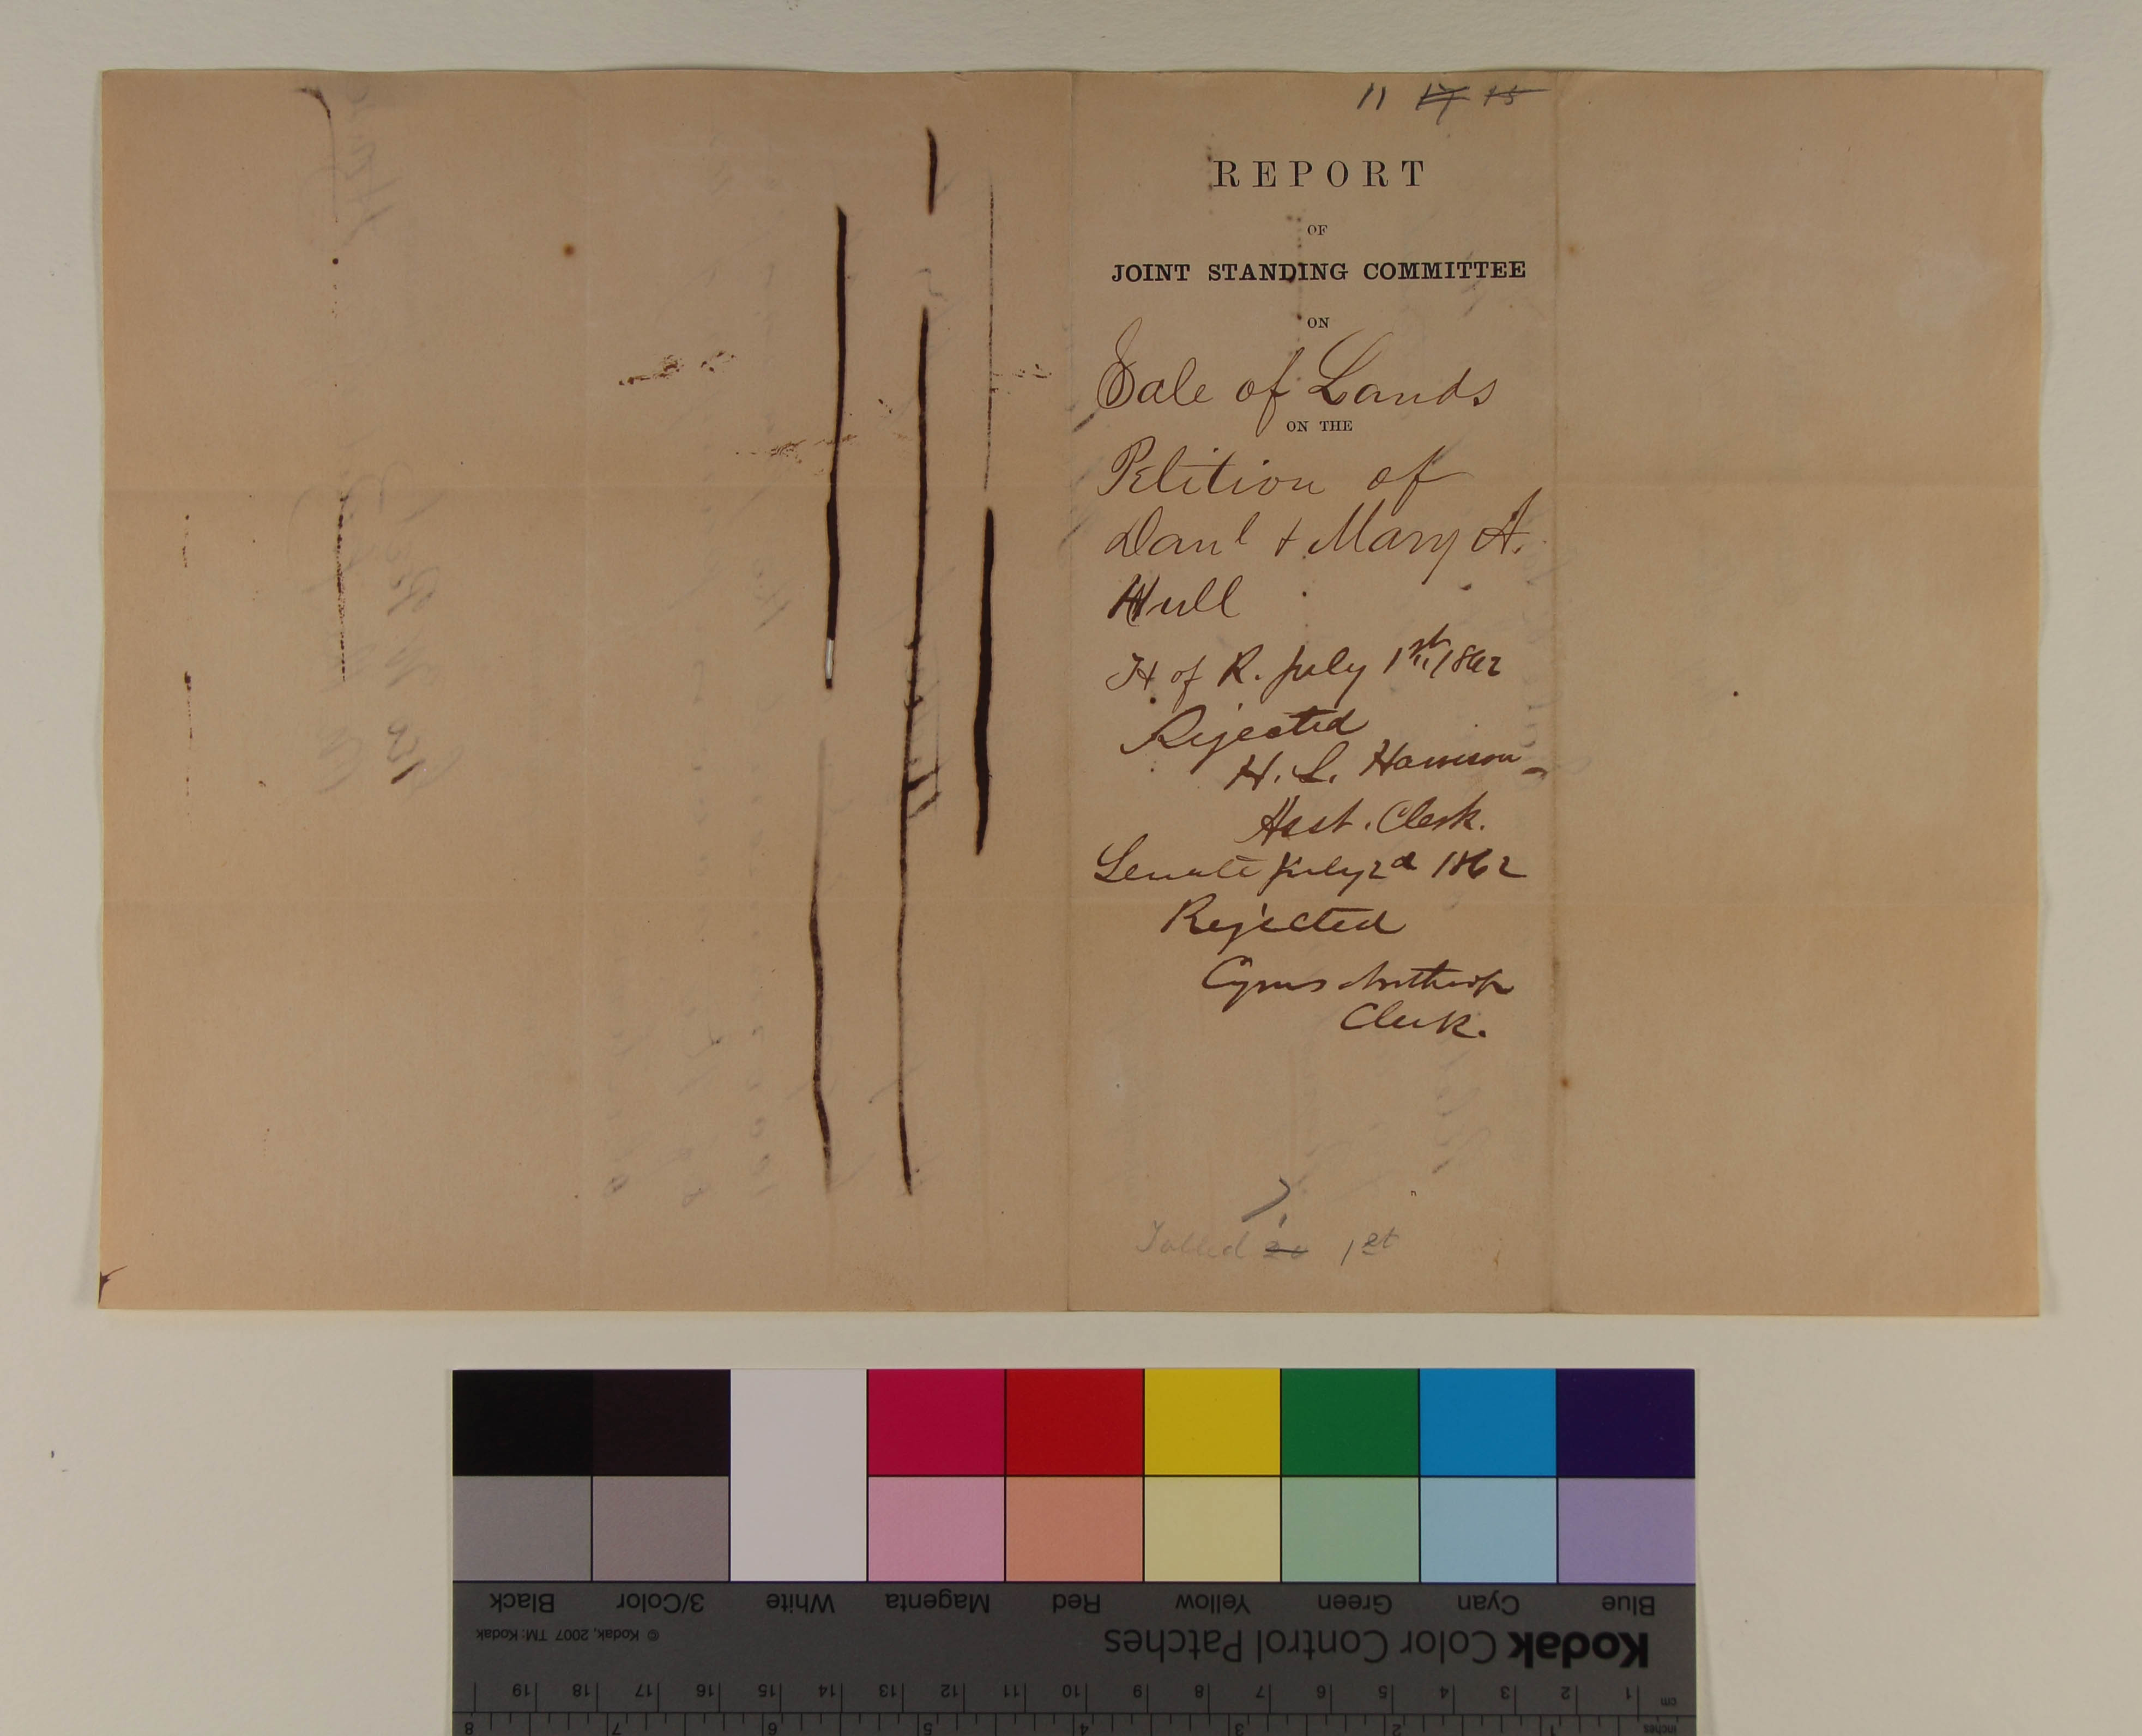 11 17 15
REPORT
OF
JOINT STANDING COMMITTEE
ON
Sale of Lands
ON THE
Petition of
Danl & Mary A.
Hull
H of R. July 1st, 1862
Rejected
H. L. Harrison
Asst. Clerk.
Senate July 2d 1862
Rejected
Cyrus Northrop
Clerk.
7
Tabled 1st
Black 3/Color White Magenta Red Yellow Green Cyan Blue
© Kodak, 2007 TM: Kodak
Kodak Color Control Patches
cm 1 2 3 4 5 6 7 8 9 10 11 12 13 14 15 16 17 18 19
inches 1 2 3 4 5 6 7 8